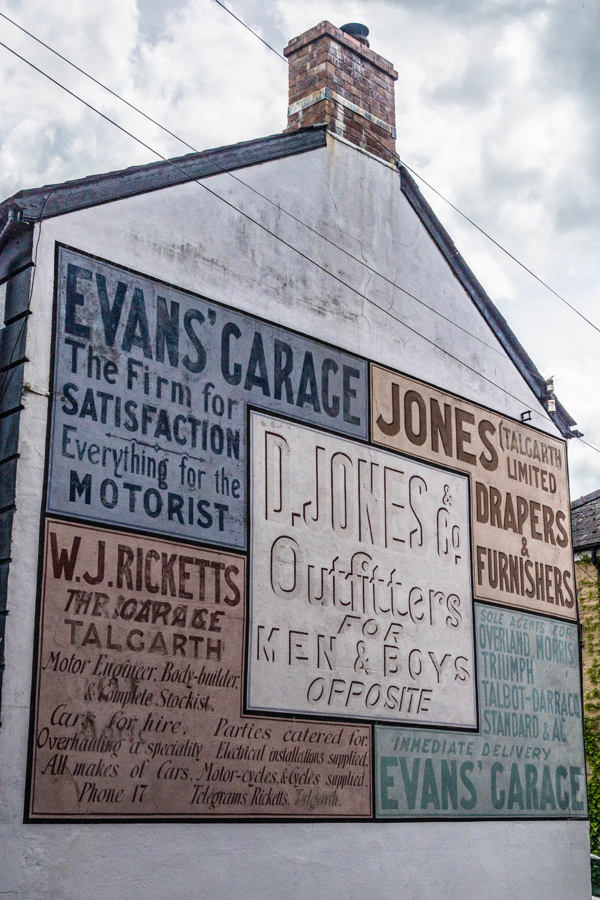 EVANS' GARAGE
The Firm for
SATISFACTION
Everything for the
MOTORIST
JONES (TALGARTH
LIMITED
DRAPERS
&
FURNISHERS
D. JONES & Co
Outfitters
FOR
MEN & BOYS
OPPOSITE
W.J. RICKETTS
THE GARAGE
TALGARTH
Motor Engineer, Body-builder,
& Complete Stockist.
Cars for hire. Parties catered for.
Overhauling a speciality Electrical installations supplied.
All makes of Cars, Motor-cycles, & Cycles supplied.
Phone 17 Telegrams Ricketts. Talgarth.
SOLE AGENTS FOR
OVERLAND, MORRIS
TRIUMPH
TALBOT-DARRACQ
STANDARD & AC
IMMEDIATE DELIVERY
EVANS' GARAGE